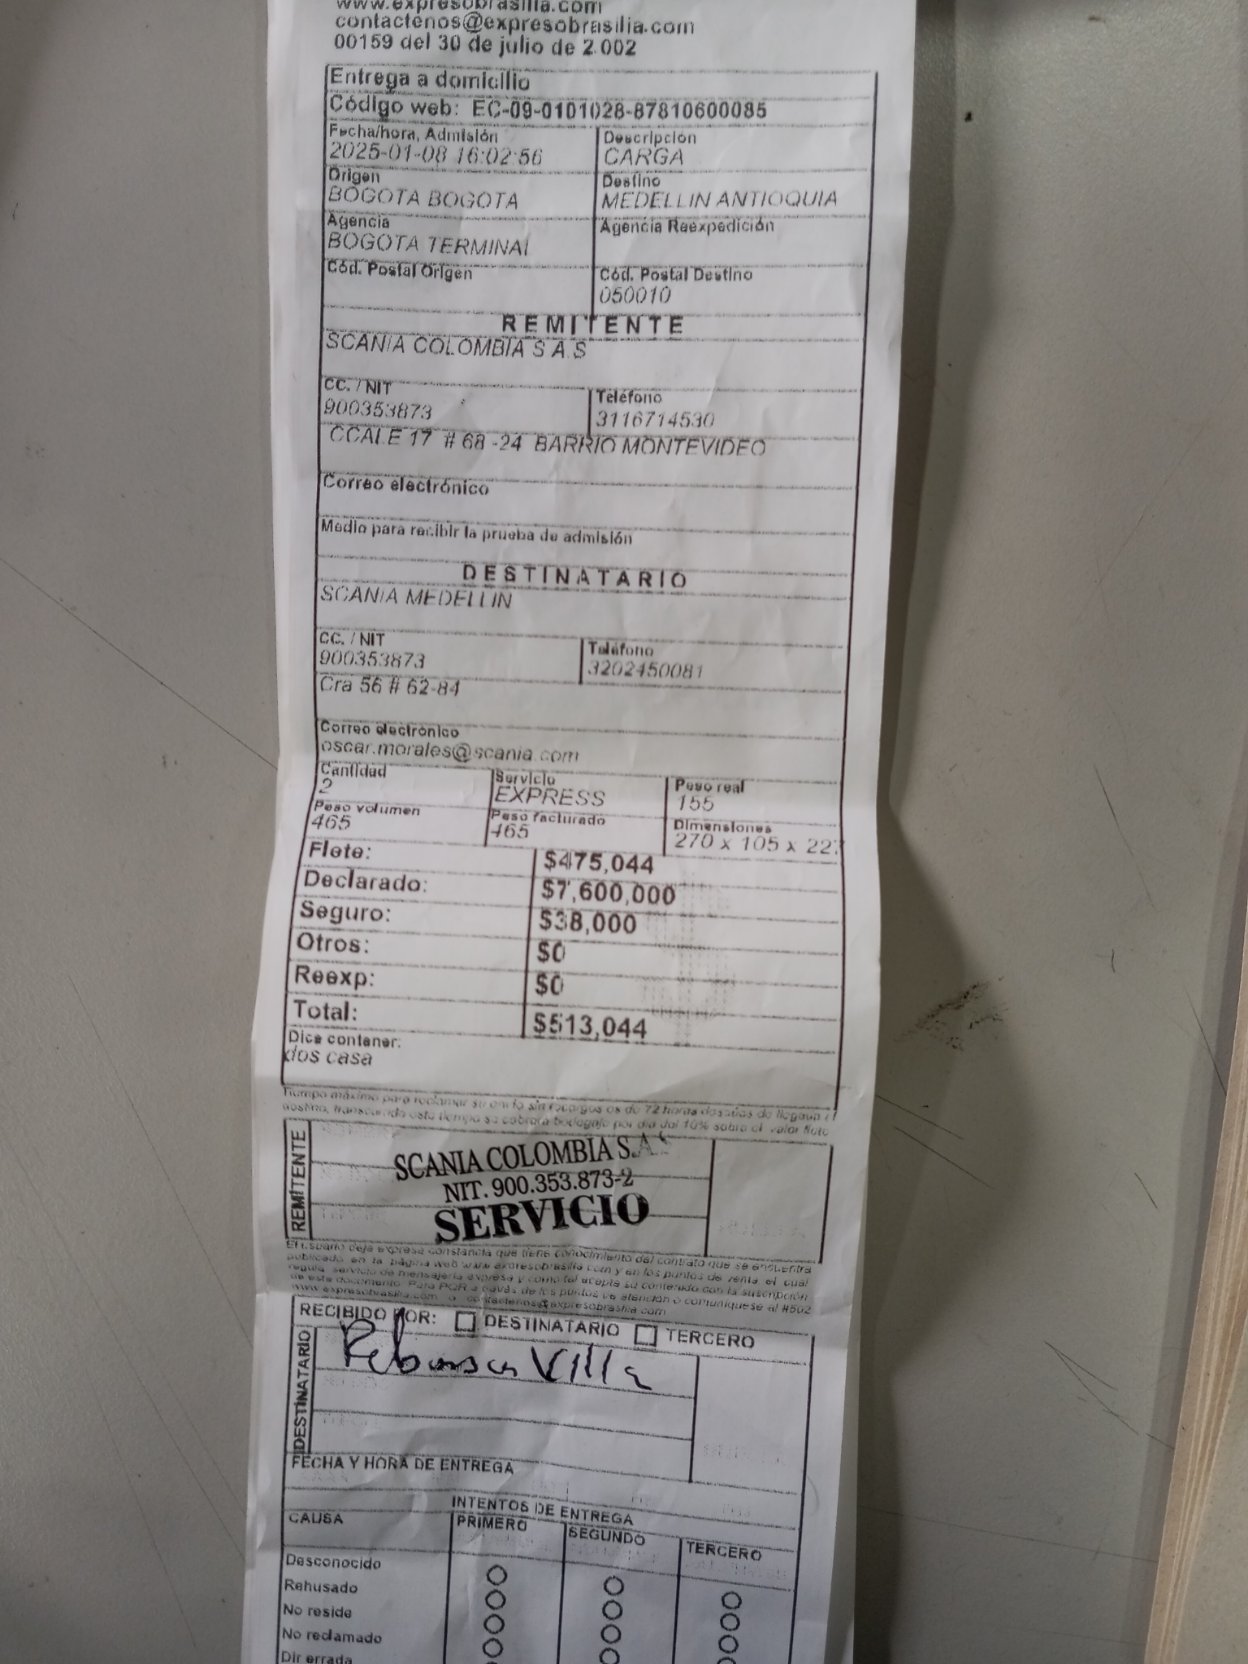 www.expresobrasilia.com
contactenos@expresobrasilia.com
00159 del 30 de julio de 2.002
Entrega a domicilio
Código web: EC-09-0101028-87810600085
Fecha/hora, Admisión Descripcion
2025-01-08 16:02:56 CARGA
Origen Destino
BOGOTA BOGOTA MEDELLIN ANTIOQUIA
Agencia Agencia Reexpedición
BOGOTA TERMINAl
Cód. Postal Origen Cód. Postal Destino
050010
REMITENTE
SCANIA COLOMBIA S A S
CC. / NIT Teléfono
900353873 3116714530
CCALE 17 # 68 -24 BARRIO MONTEVIDEO
Correo electrónico
Medio para recibir la prueba de admisión
DESTINATARIO
SCANIA MEDELLIN
CC. / NIT Teléfono
900353873 3202450081
Cra 56 # 62-84
Correo electrónico
oscar.morales@scania.com
Cantidad Servicio Peso real
2 EXPRESS 155
Peso volumen Peso facturado Dimensiones
465 465 270 x 105 x 227
Flete: $475,044
Declarado: $7,600,000
Seguro: $38,000
Otros: $0
Reexp: $0
Total: $513,044
Dice contener:
dos casa
Tiempo máximo para reclamar su envío sin recargos es de 72 horas después de llegado el
destino, transcurrido este tiempo se cobrara bodegaje por dia del 10% sobre el valor flete
REMITENTE
SCANIA COLOMBIA S.A.S
NIT. 900.353.873-2
SERVICIO
El usuario deja expresa constancia que tiene conocimiento del contrato que se encuentra
publicado en la página web www.expresobrasilia.com y en los puntos de venta el cual
regula servicio de mensajería expresa y como tal acepta su contenido con la suscripción
de este documento. Para PQR a través de los puntos de atención o comuníquese al #502
www.expresobrasilia.com o contactenos@expresobrasilia.com
RECIBIDO POR: DESTINATARIO TERCERO
DESTINATARIO
Villa
FECHA Y HORA DE ENTREGA
INTENTOS DE ENTREGA
CAUSA PRIMERO SEGUNDO TERCERO
Desconocido
Rehusado
No reside
No reclamado
Dir errada